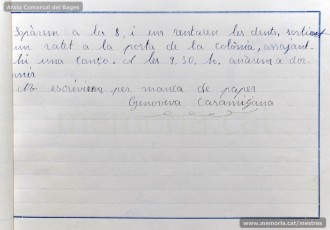 Arxiu Comarcal del Bages
Sopàrem a les 8, i ens rentarem les dents, sortint
un ratet a la porta de la colònia, assajant-
hi una canço. A les 9.30, h. anàrem a dor-
mir
No escrivírem per manca de paper
Genoveva Casamitjana
www.memoria.cat/mestres